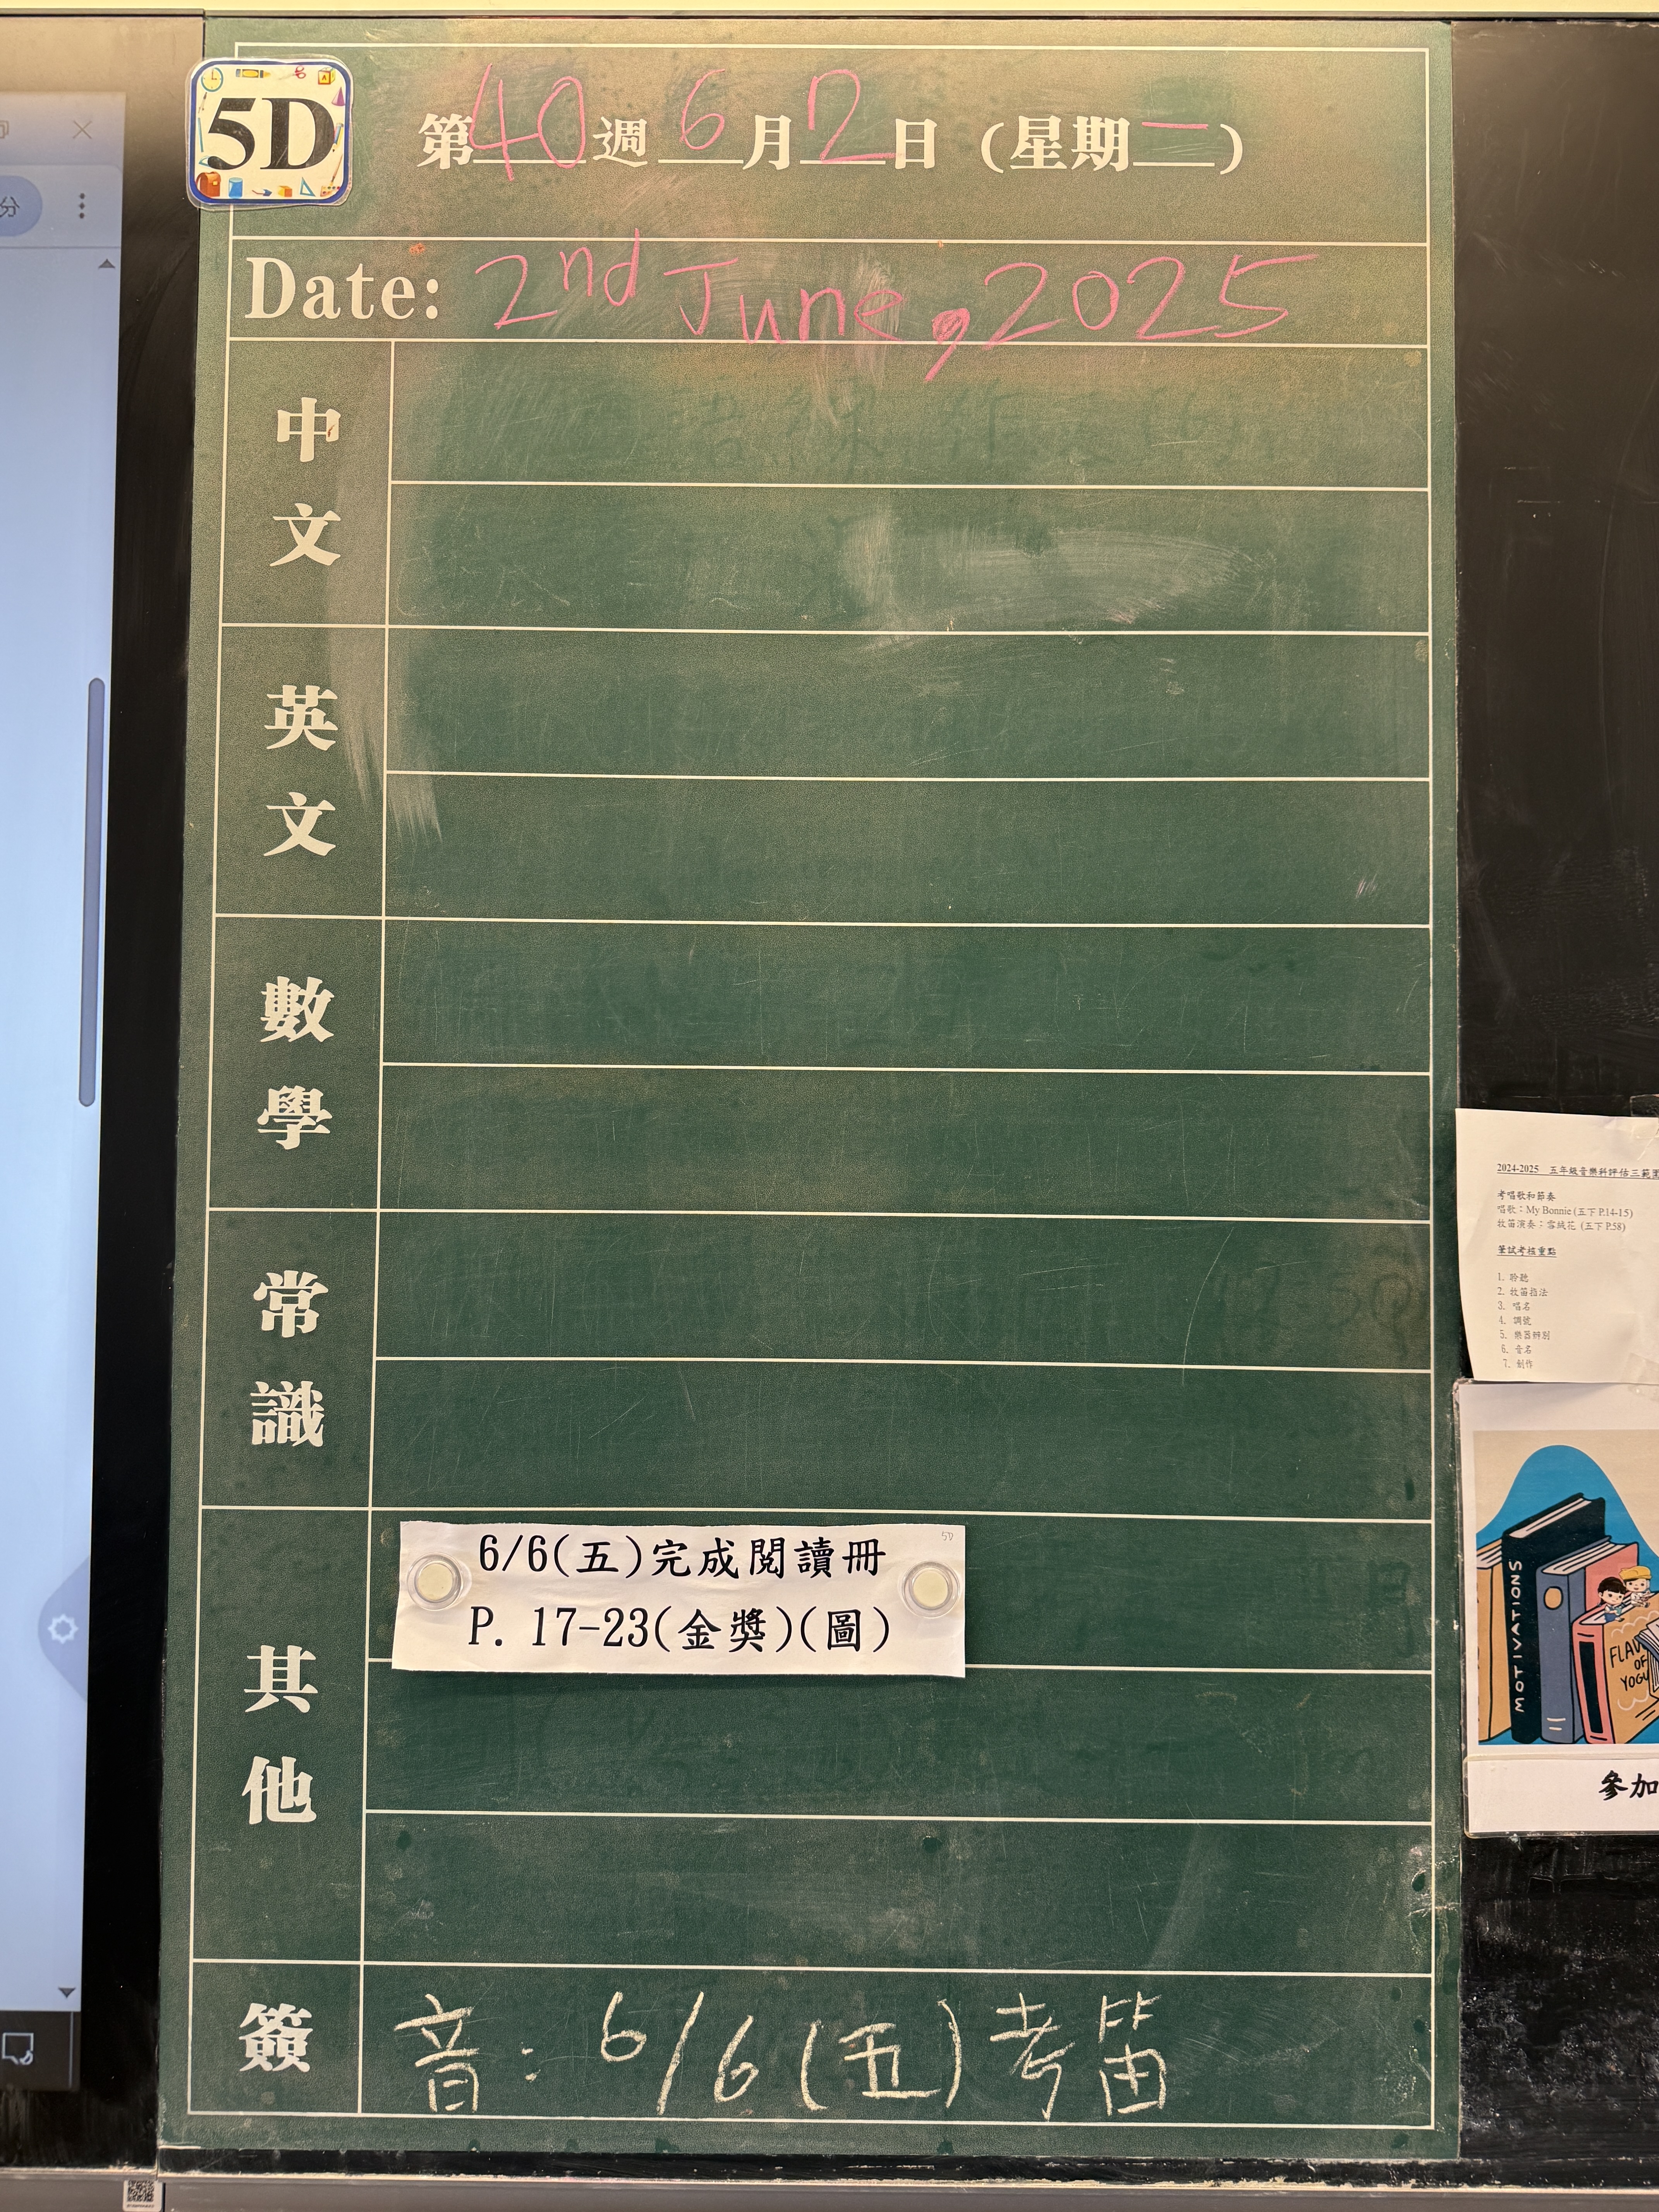 5D
第40週 6月2日 (星期一)
Date: 2nd June, 2025
中文
英文
數學
常識
其他
6/6(五)完成閱讀冊
P. 17-23(金獎)(圖)
5D
簽
音: 6/6 (五) 考笛
分
2024-2025 五年級音樂科評估三範圍
考唱歌和節奏
唱歌：My Bonnie (五下 P.14-15)
牧笛演奏：雪絨花 (五下 P.58)
筆試考核重點
1. 聆聽
2. 牧笛指法
3. 唱名
4. 調號
5. 樂器辨別
6. 音名
7. 創作
MOTIVATIONS
FLAV
OF
YOGU
參加